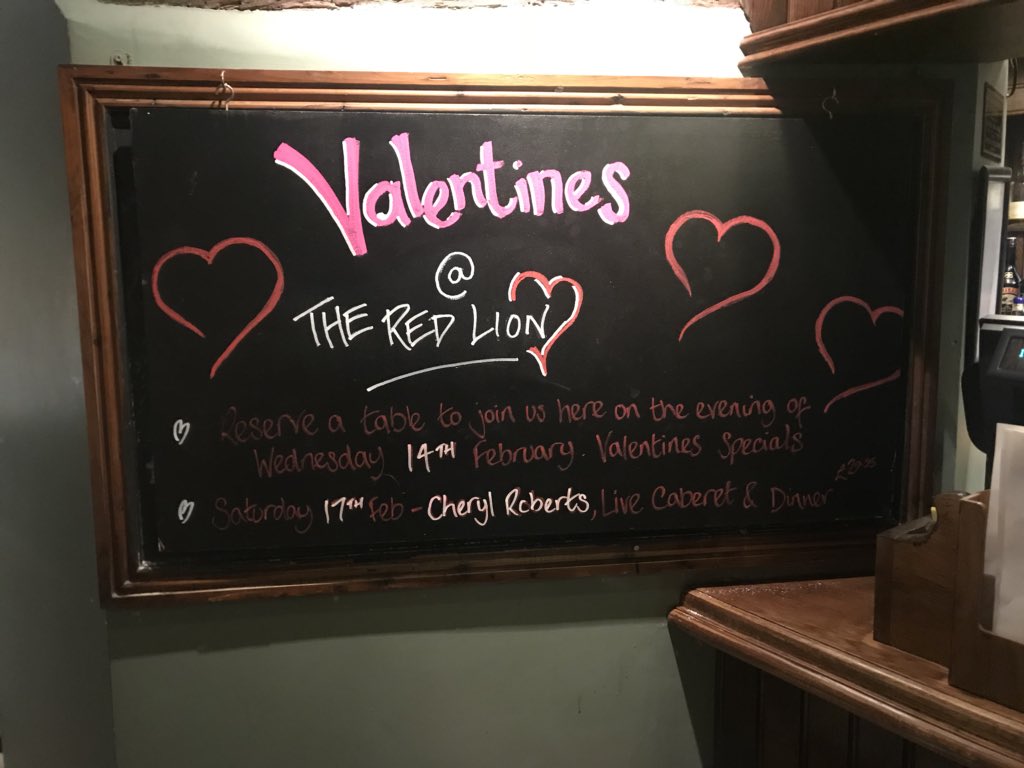 Valentines
@
THE RED LION
Reserve a table to join us here on the evening of
Wednesday 14TH February. Valentines Specials
£29.95
Saturday 17TH Feb - Cheryl Roberts, Live Caberet & Dinner